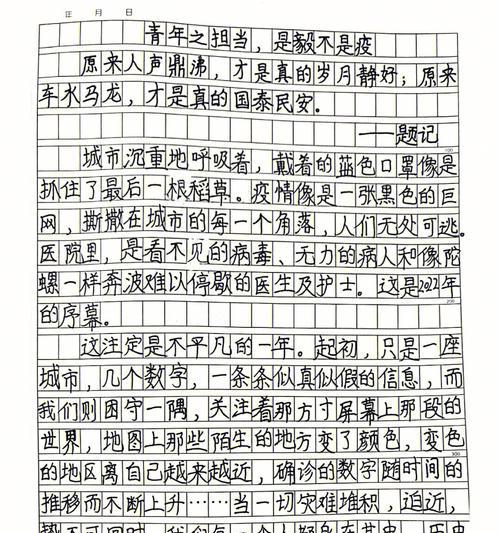 年 月 日
青年之担当，是毅不是疫
原来人声鼎沸，才是真的岁月静好；原来
车水马龙，才是真的国泰民安。
——题记
100
城市沉重地呼吸着，戴着的蓝色口罩像是
抓住了最后一根稻草。疫情像是一张黑色的巨
网，撕撒在城市的每一个角落，人们无处可逃。
医院里，是看不见的病毒、无力的病人和像陀
螺一样奔波难以停歇的医生及护士。这是2022年
200
的序幕。
这注定是不平凡的一年。起初，只是一座
城市，几个数字，一条条似真似假的信息，而
我们则困守一隅，关注着那方寸屏幕上那段的
世界，地图上那些陌生的地方变了颜色，变色
300
的地区离自己越来越近，确诊的数字随时间的
推移而不断上升……当一切灾难堆积，迫近，